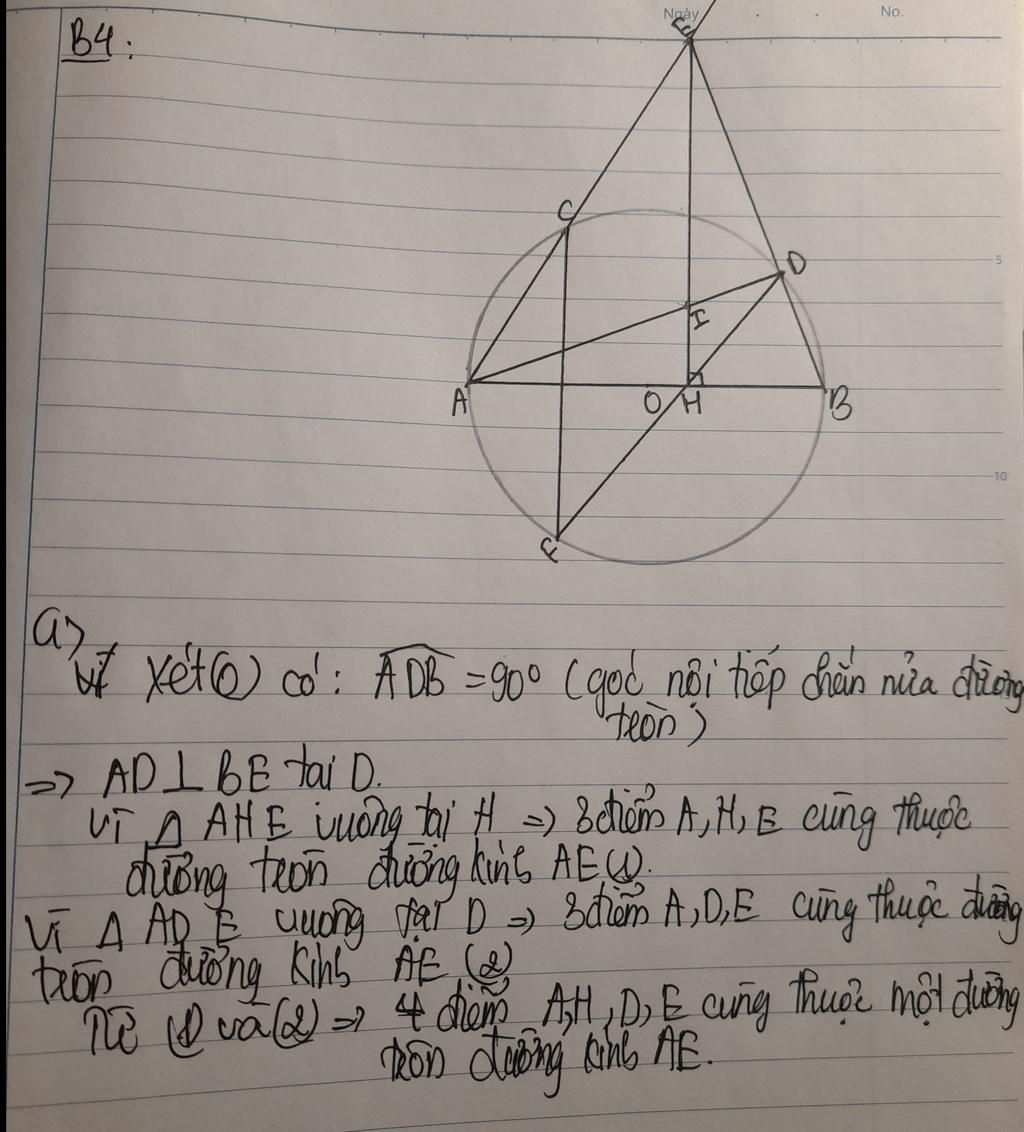 Ngày No.
B4:
E
C
D
5
I
A
O H
B
10
F
a>
Xét (O) có: ADB = 90° (góc nội tiếp chắn nửa đường
tròn)
=> AD ⊥ BE tại D.
Vì Δ AHE vuông tại H => 3 điểm A, H, E cùng thuộc
đường tròn đường kính AE (1).
Vì Δ ADE vuông tại D => 3 điểm A, D, E cùng thuộc đường
tròn đường kính AE (2)
Từ (1) và (2) => 4 điểm A, H, D, E cùng thuộc một đường
tròn đường kính AE.